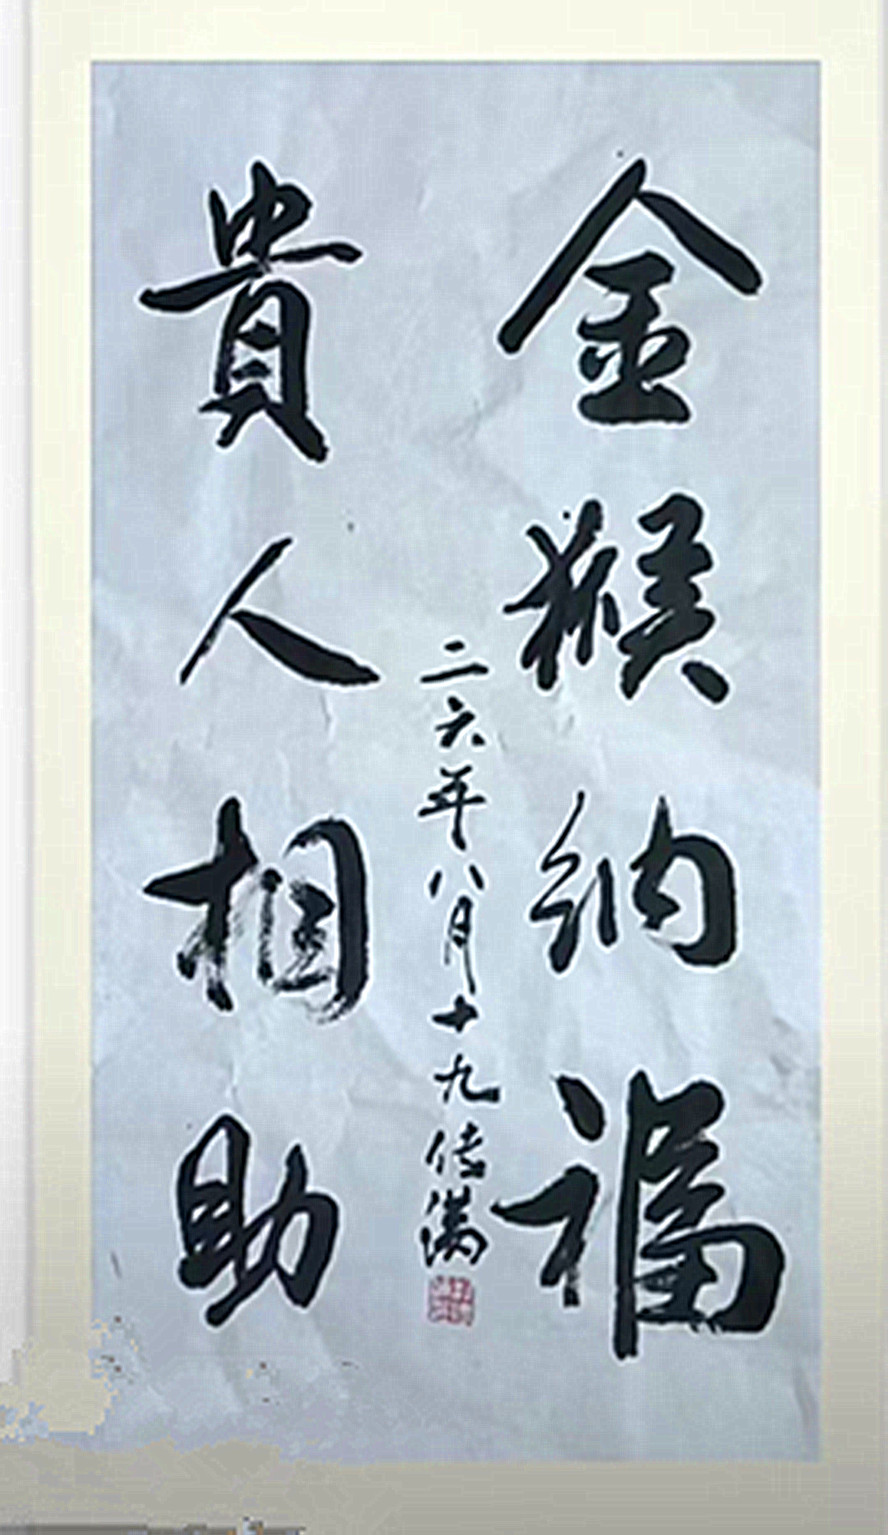 金猴纳福
貴人相助
二六年八月十九传满